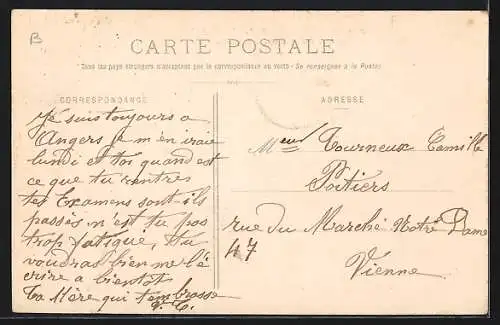 B
CARTE POSTALE
Tous les pays étrangers n'acceptent pas la correspondance au verso - Se renseigner à la Poste
CORRESPONDANCE
Je suis toujours a
Angers je m'en irai
lundi et toi quand est
ce que tu rentres
tes Examens sont-ils
passés n'est tu pas
trop fatigué, tu
voudras bien me l'é
crire a bientot
ta Mère qui t'embrasse
ADRESSE
Tourneux Camille
Poitiers
rue du Marché Notre Dame
47
Vienne